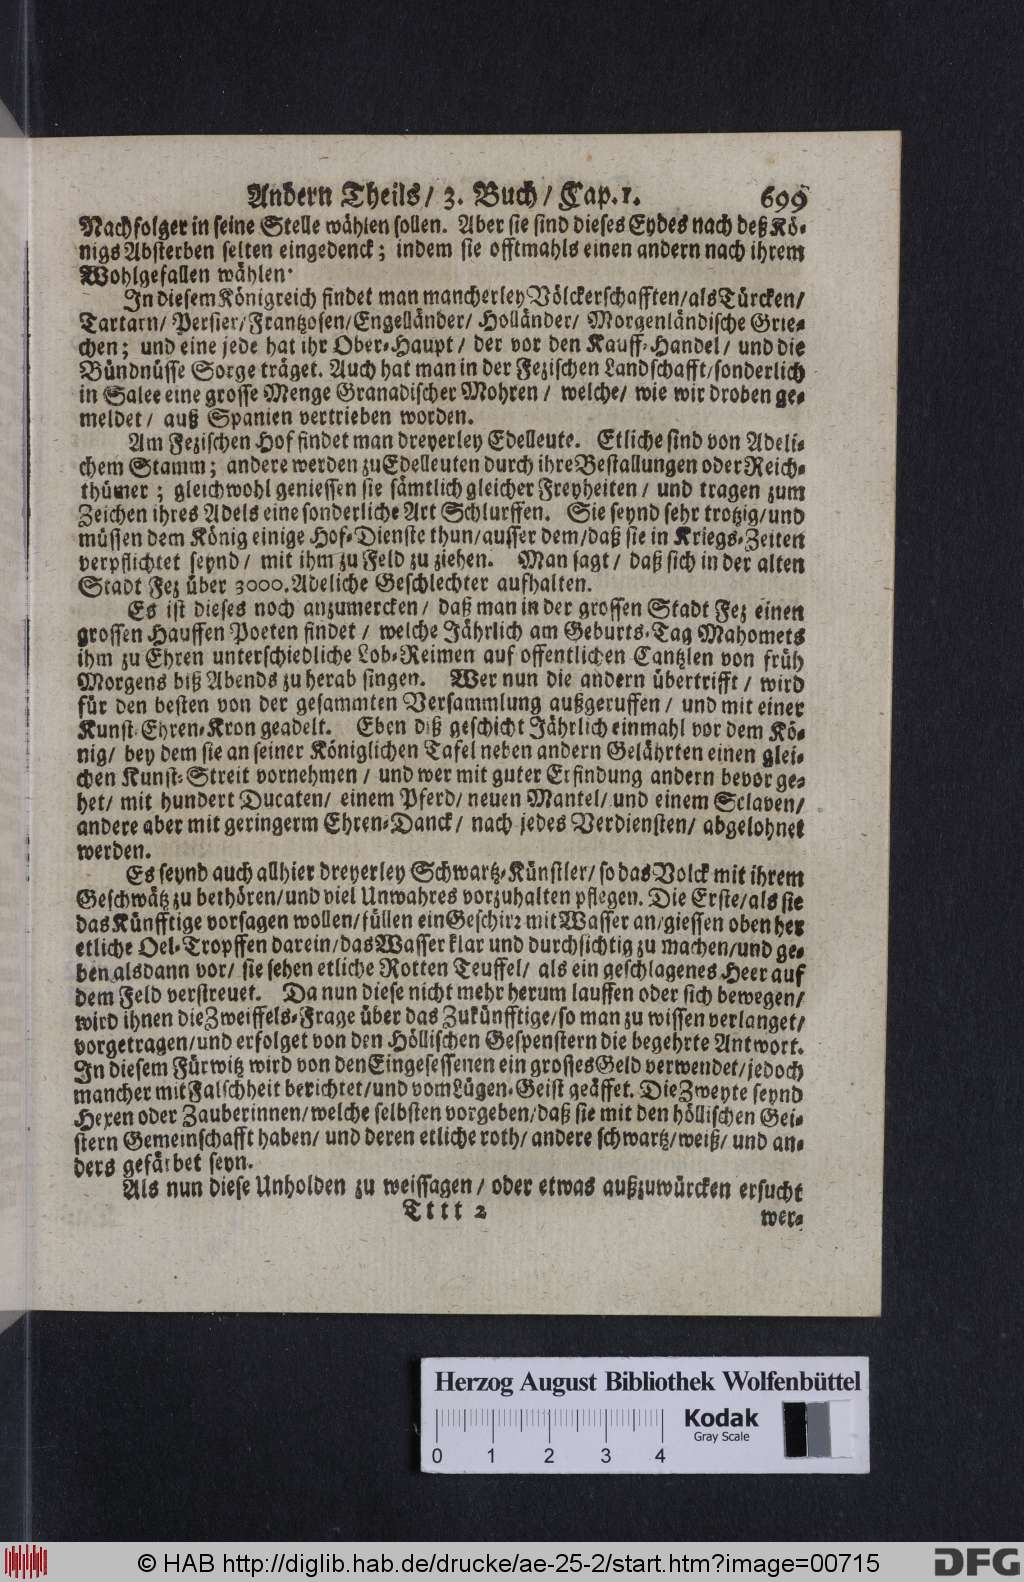 Andern Theils/ 3. Buch/ Cap. 1. 699
Nachfolger in seine Stelle wählen sollen. Aber sie sind dieses Eydes nach deß Kö-
nigs Absterben selten eingedenck; indem sie offtmahls einen andern nach ihrem
Wohlgefallen wählen.
In diesem Königreich findet man mancherley Völckerschafften/ als Türcken/
Tartarn/ Persier/ Frantzosen/ Engelländer/ Holländer/ Morgenländische Grie-
chen; und eine jede hat ihr Ober-Haupt/ der vor den Kauff-Handel/ und die
Bündnüsse Sorge träget. Auch hat man in der Fezischen Landschafft/ sonderlich
in Salee eine grosse Menge Granadischer Mohren/ welche/ wie wir droben ge-
meldet/ auß Spanien vertrieben worden.
Am Fezischen Hof findet man dreyerley Edelleute. Etliche sind von Adeli-
chem Stamm; andere werden zu Edelleuten durch ihre Bestallungen oder Reich-
thümer; gleichwohl geniessen sie sämtlich gleicher Freyheiten/ und tragen zum
Zeichen ihres Adels eine sonderliche Art Schlurffen. Sie seynd sehr trotzig/ und
müssen dem König einige Hof-Dienste thun/ ausser dem/ daß sie in Kriegs-Zeiten
verpflichtet seynd/ mit ihm zu Feld zu ziehen. Man sagt/ daß sich in der alten
Stadt Fez über 3000. Adeliche Geschlechter aufhalten.
Es ist dieses noch anzumercken/ daß man in der grossen Stadt Fez einen
grossen Hauffen Poeten findet/ welche Jährlich am Geburts-Tag Mahomets
ihm zu Ehren unterschiedliche Lob-Reimen auf offentlichen Cantzlen von früh
Morgens biß Abends zu herab singen. Wer nun die andern übertrifft/ wird
für den besten von der gesammten Versammlung außgeruffen/ und mit einer
Kunst-Ehren-Kron geadelt. Eben diß geschicht Jährlich einmahl vor dem Kö-
nig/ bey dem sie an seiner Königlichen Tafel neben andern Gelährten einen glei-
chen Kunst-Streit vornehmen/ und wer mit guter Erfindung andern bevor ge-
het/ mit hundert Ducaten/ einem Pferd/ neuen Mantel/ und einem Sclaven/
andere aber mit geringerm Ehren-Danck/ nach jedes Verdiensten/ abgelohnet
werden.
Es seynd auch allhier dreyerley Schwartz-Künstler/ so das Volck mit ihrem
Geschwätz zu bethören/ und viel Unwahres vorzuhalten pflegen. Die Erste/ als sie
das Künfftige vorsagen wollen/ füllen ein Geschirr mit Wasser an/ giessen oben her
etliche Oel-Tropffen darein/ das Wasser klar und durchsichtig zu machen/ und ge-
ben alsdann vor/ sie sehen etliche Rotten Teuffel/ als ein geschlagenes Heer auf
dem Feld verstreuet. Da nun diese nicht mehr herum lauffen oder sich bewegen/
wird ihnen die Zweiffels-Frage über das Zukünfftige/ so man zu wissen verlanget/
vorgetragen/ und erfolget von den Höllischen Gespenstern die begehrte Antwort.
In diesem Fürwitz wird von den Eingesessenen ein grosses Geld verwendet/ jedoch
mancher mit Falschheit berichtet/ und vom Lügen-Geist geäffet. Die Zweyte seynd
Hexen oder Zauberinnen/ welche selbsten vorgeben/ daß sie mit den höllischen Gei-
stern Gemeinschafft haben/ und deren etliche roth/ andere schwartz/ weiß/ und an-
ders gefärbet seyn.
Als nun diese Unholden zu weissagen/ oder etwas außzuwürcken ersucht
Tttt 2 wer-
Herzog August Bibliothek Wolfenbüttel
0 1 2 3 4 Kodak
Gray Scale
© HAB http://diglib.hab.de/drucke/ae-25-2/start.htm?image=00715 DFG